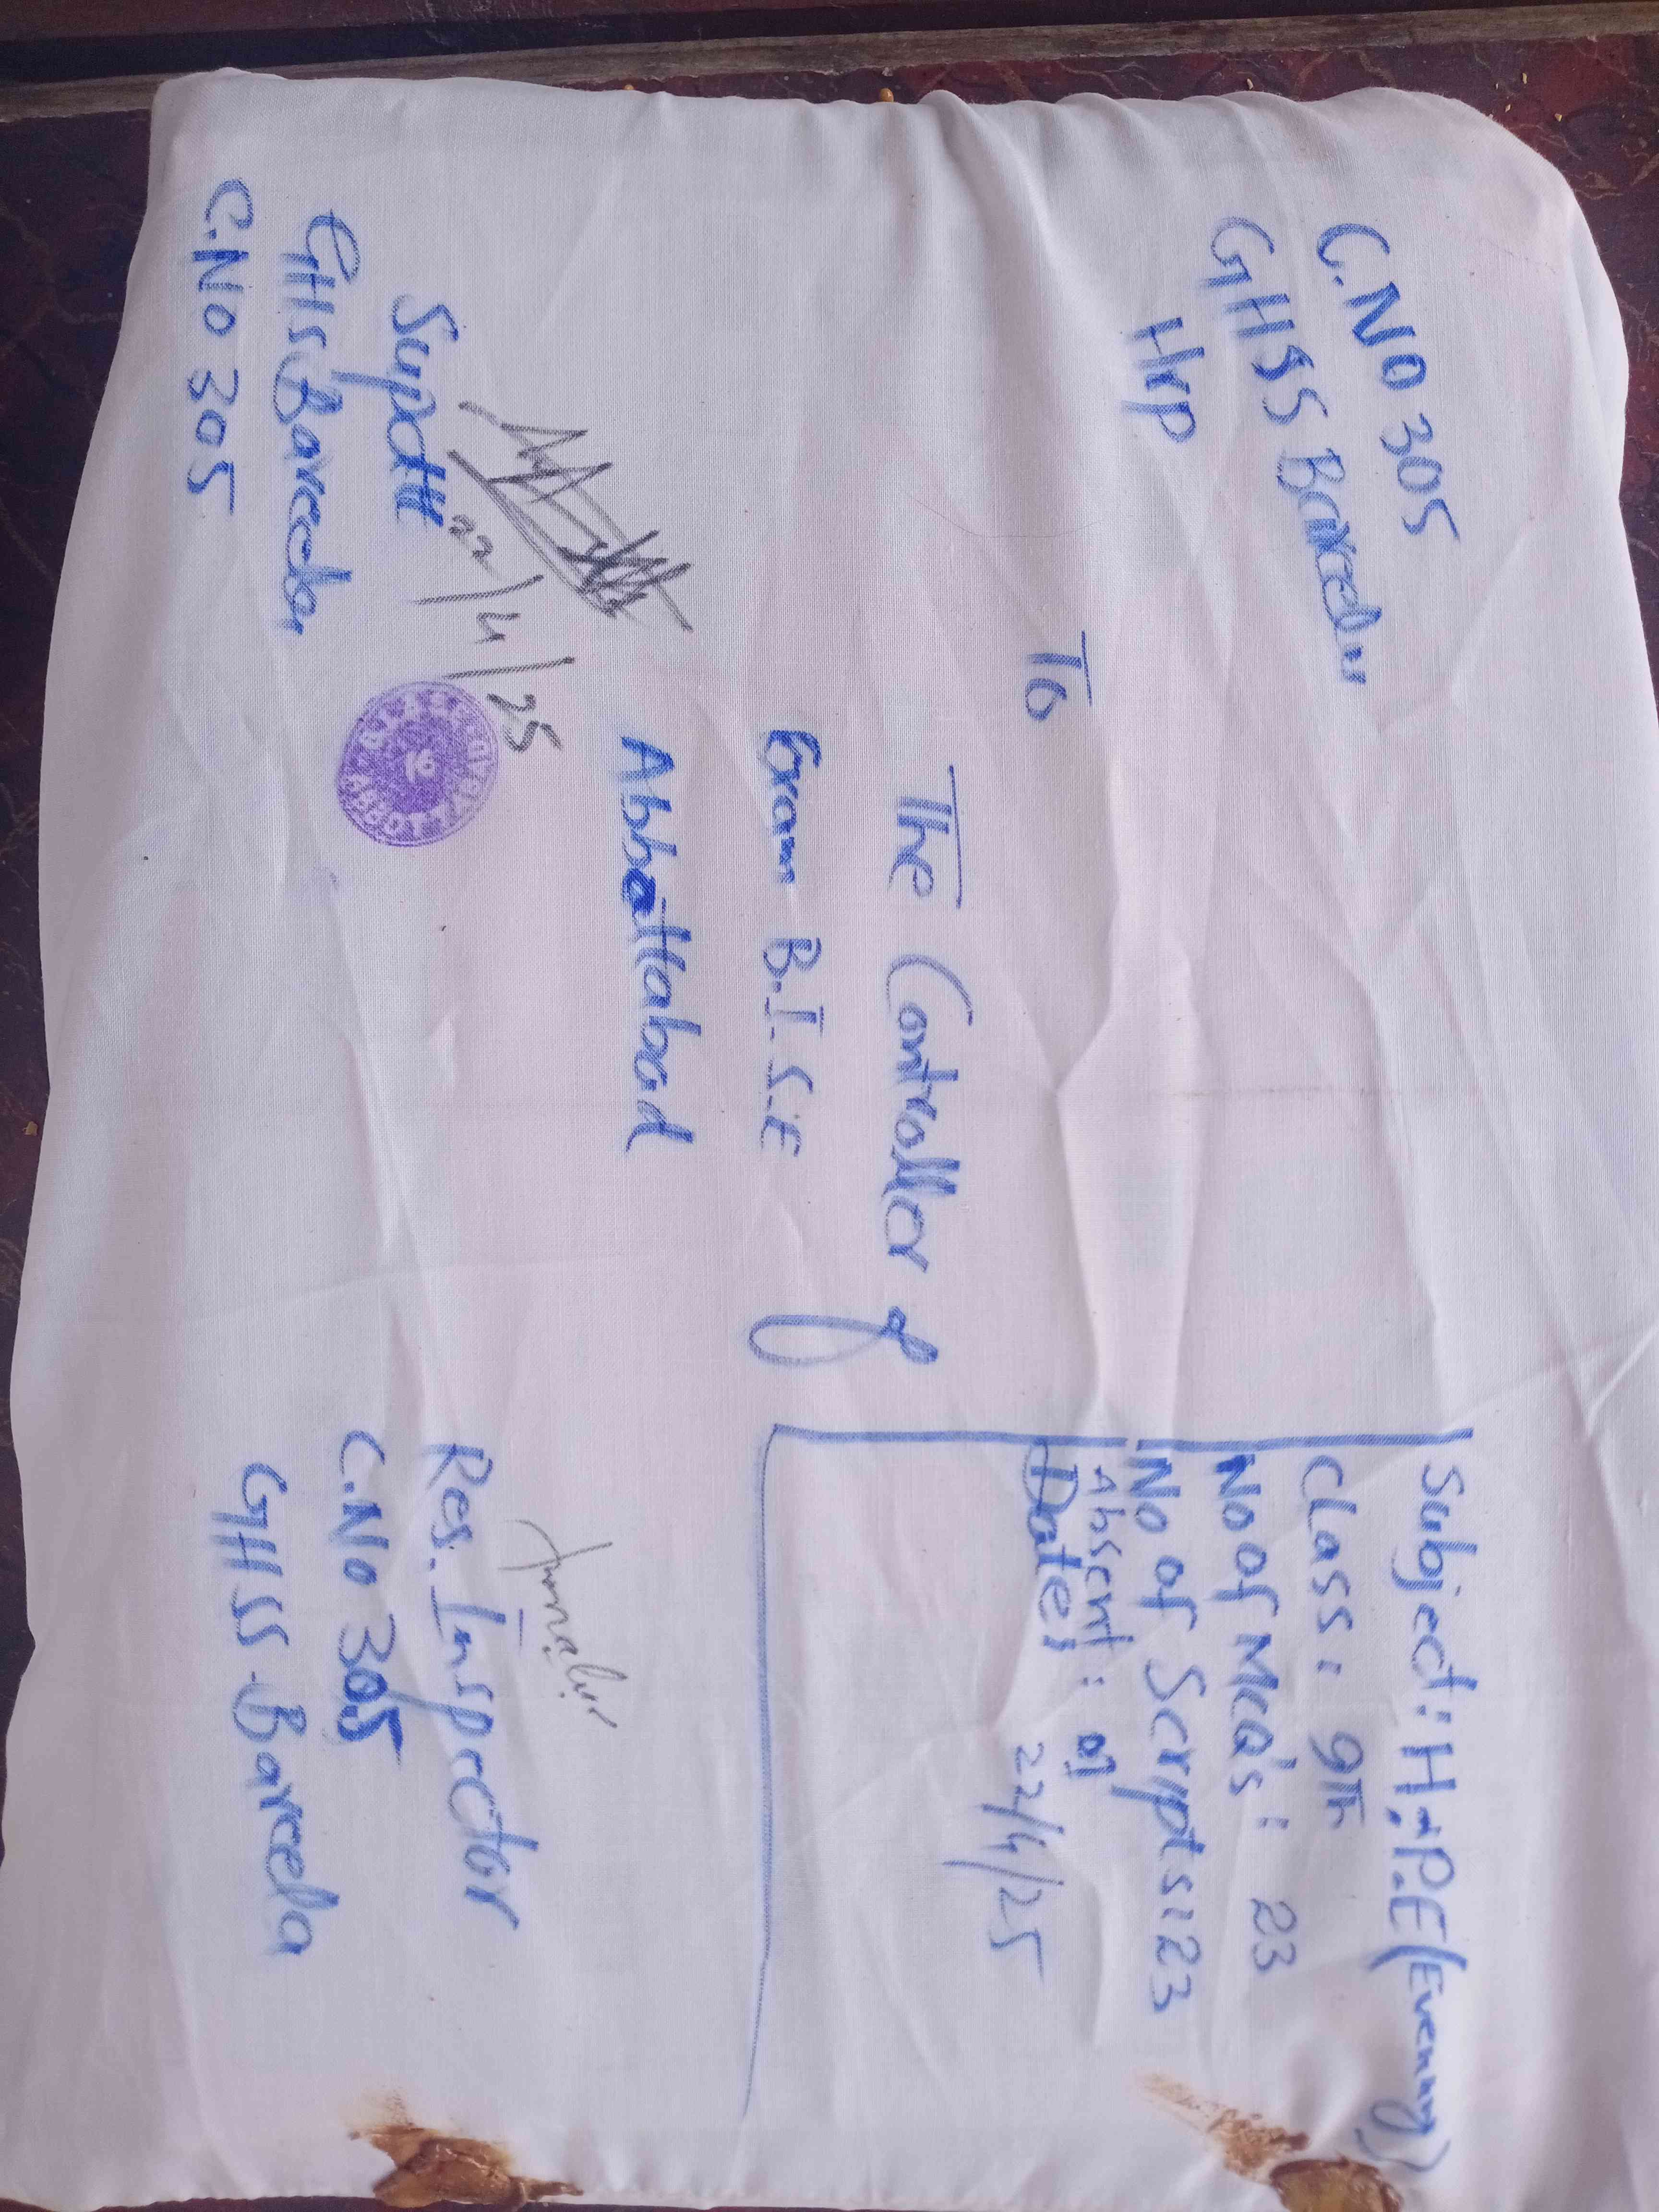 C.NO 305
GHSS Bareela
Hrp
Subject: H.P.E (Evening)
Class: 9Th
No of MCQ's: 23
No of Scripts: 23
Absent: 01
Date: 22/4/25
To
The Controller of
Exam B.I.S.E
Abbottabad
22/4/25
Supdtt
GHSS Bareela
C.NO 305
16
Res. Inspector
C.NO 305
GHSS Bareela